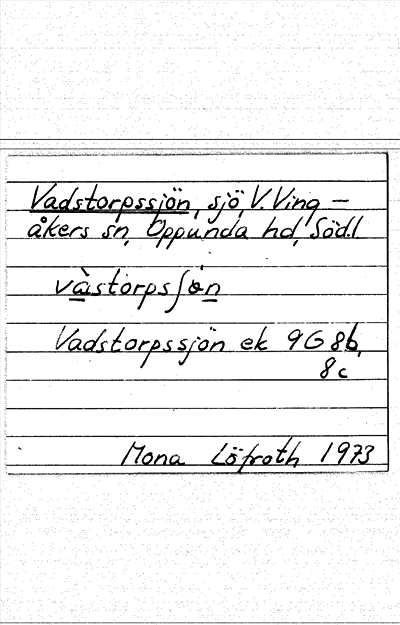 Vadstorpssjön, sjö, V. Ving-
åkers sn, Oppunda hd, Södl.
vàstorpsʃòn
Vadstorpssjön ek 9G 8b,
8c
Mona Löfroth 1973